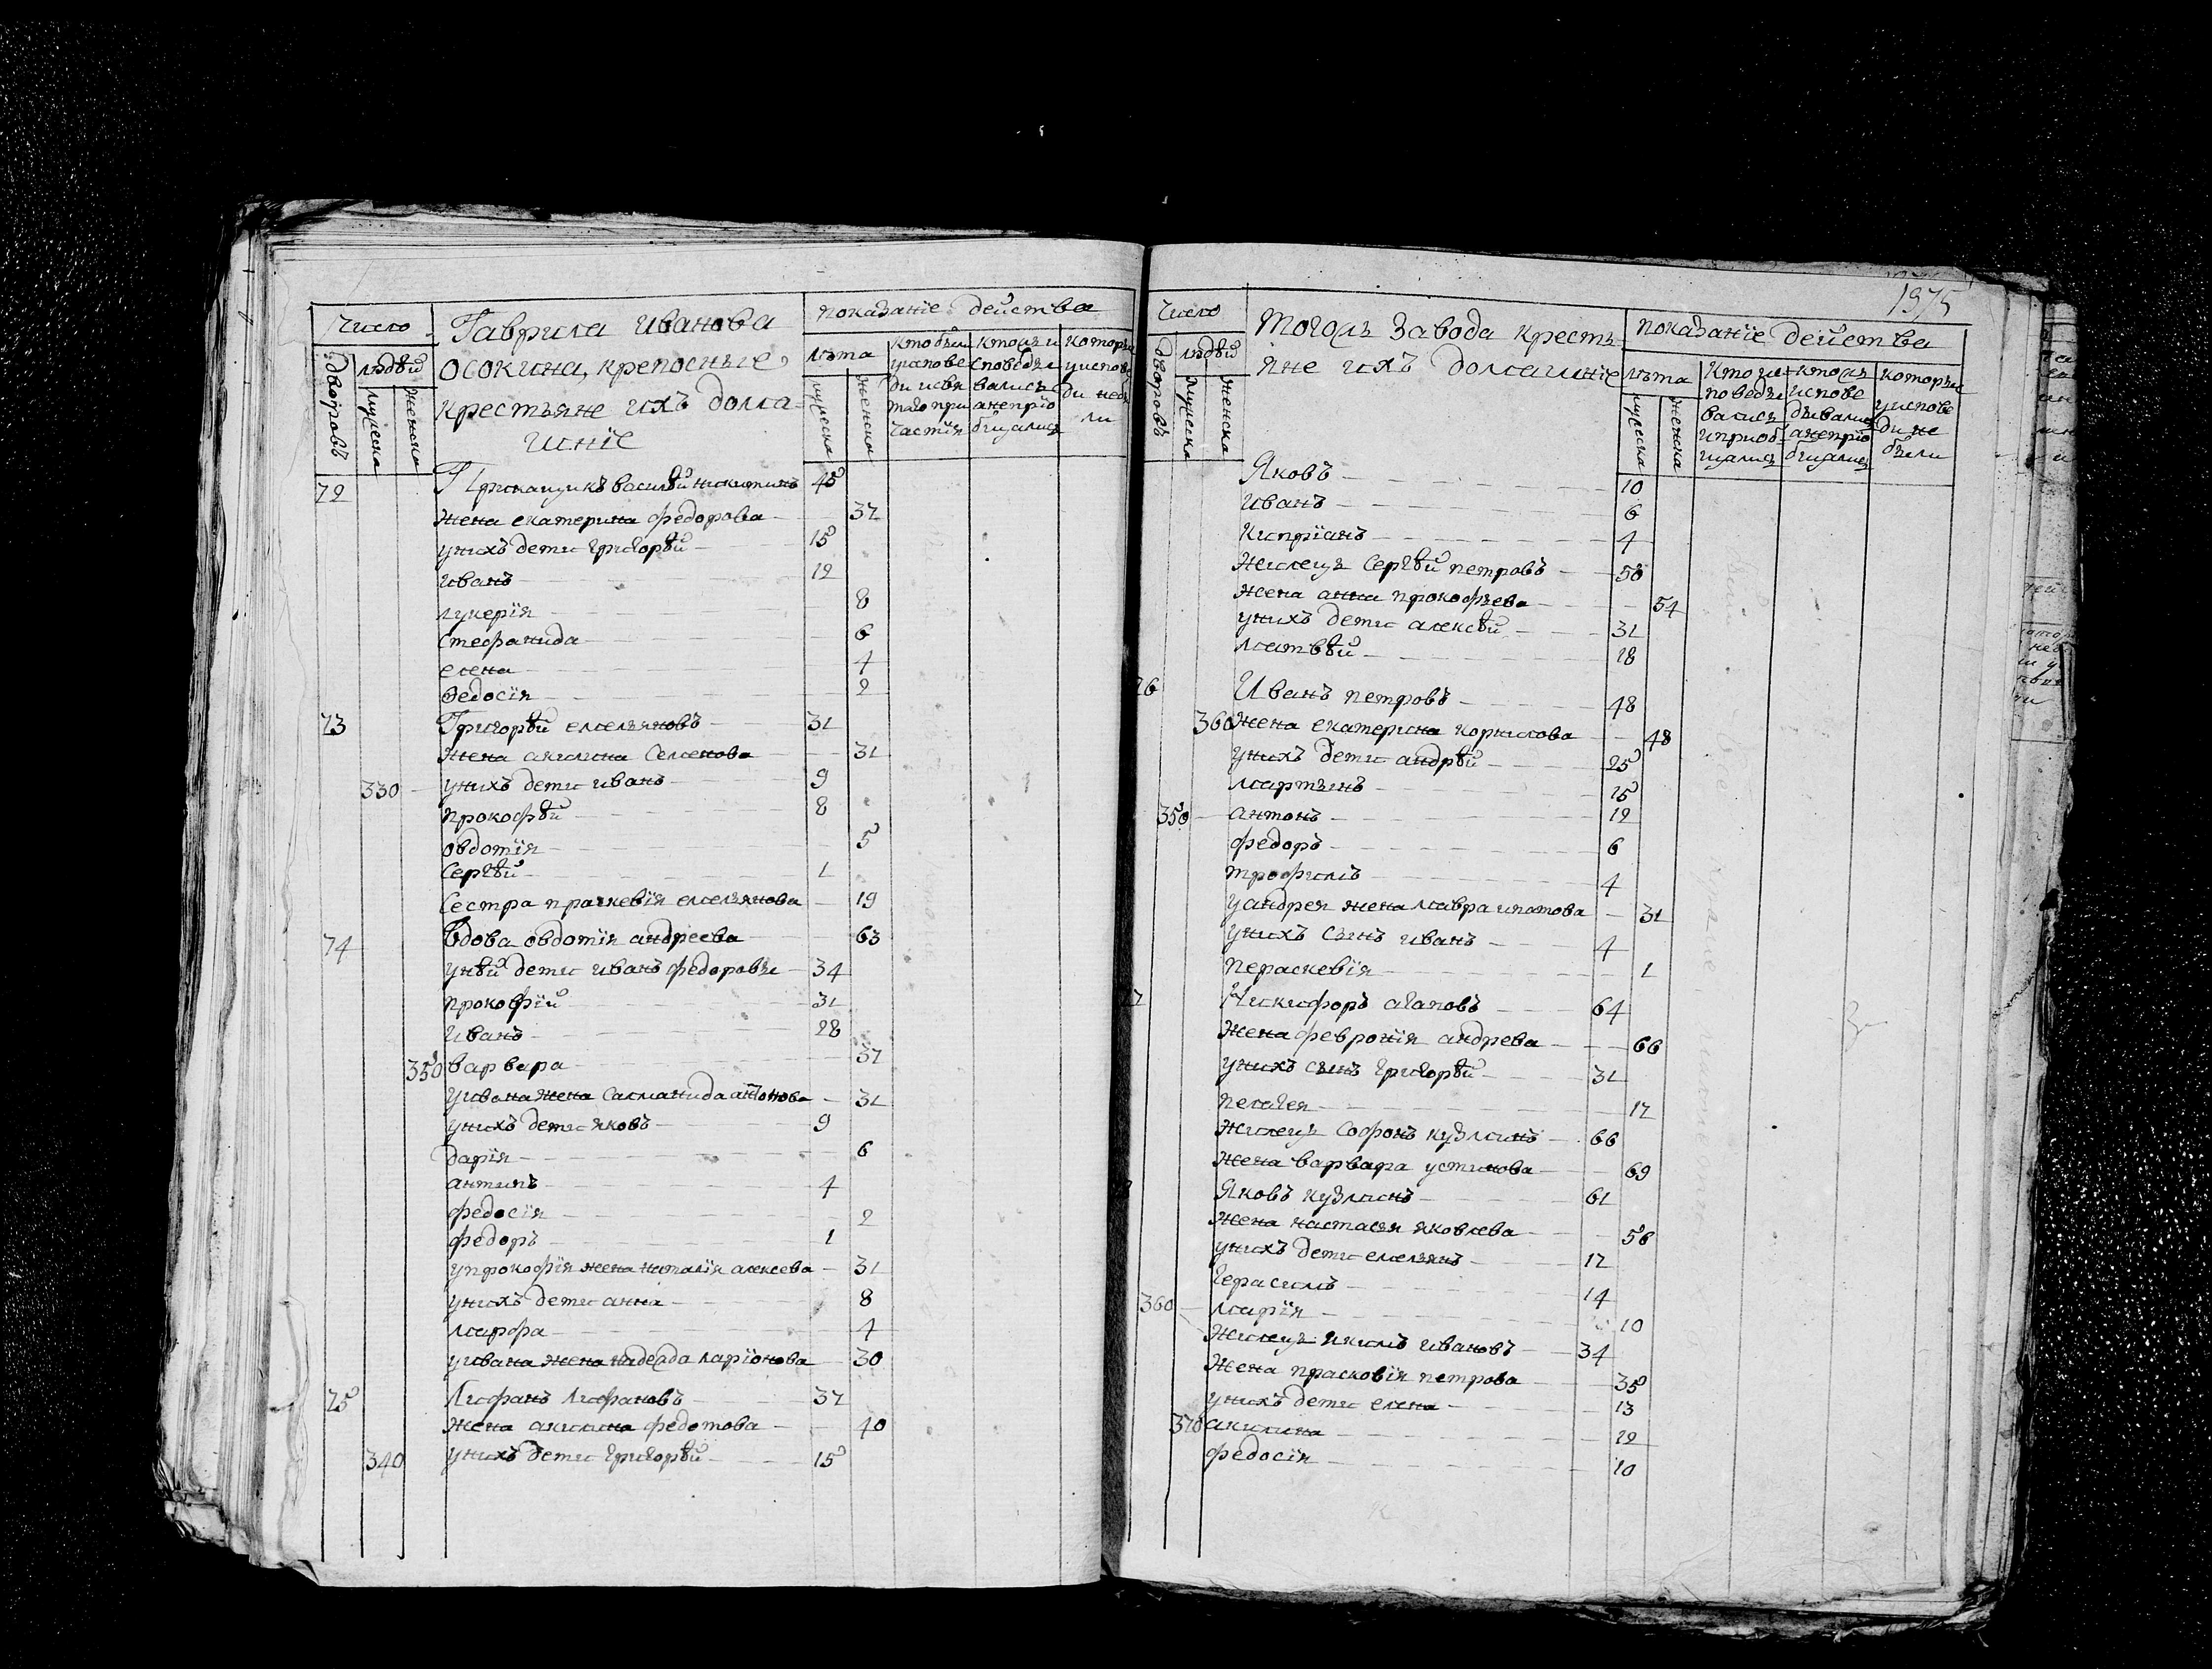 Число
Гаврила Иванова
показанїе действа
дворовъ
людѣй
мужеска
женска
осокина, крепосные
крестьяне ихъ дома
шнїе
лѣта
мужеска
женска
кто были
у испове
ди и свя
таго при
частїя
кто и
споведы
вались
а непрїо
бщались
которые
у испове
ди небы
ли
72 Прикащикъ василѣй никитинъ 45
жена екатерина федорова 37
у нихъ дети григорѣй 15
иванъ 12
лукерїя 8
стефанида 6
елена 4
Ѳедосїя 2
73 Григорѣй емельяновъ 31
жена акилина семенова 31
330 у нихъ дети иванъ 9
прокофѣй 8
овдотїя 5
сергѣй 1
сестра праскевїя емельянова 19
74 Вдова овдотїя андреева 63
у нѣй дети иванъ федоровы 34
прокофїй 31
иванъ 28
350 варвара 37
у ивана жена саломанида антонова 31
у нихъ дети яковъ 9
дарїя 6
антипъ 4
федосїя 2
федоръ 1
у прокофїя жена наталїя алексева 31
у нихъ дети анна 8
марфа 4
у ивана жена надежда ларїонова 30
75 Лифанъ Лифановъ 37
жена акилина федотова 40
340 у нихъ дети григорѣй 15
1975
Число
Тогожъ завода кресть
показанїе действа
дворовъ
людѣй
мужеска
женска
яне ихъ домашнїе
лѣта
мужеска
женска
кто ис
поведы
вались
и приоб
щались
ктожъ
испове
дывались
а непрїо
бщались
которые
у испове
ди не
были
Яковъ 10
иванъ 6
киприанъ 4
жилецъ сергѣй петровъ 50
жена анна прокофьева 54
у нихъ дети алексѣй 31
матвѣй 18
76 Иванъ петровъ 48
360 жена екатерина корнилова 48
у нихъ дети андрѣй 25
мартынъ 15
350 антонъ 12
федоръ 6
трофимъ 4
у андрея жена мавра ипатова 31
у нихъ сынъ иванъ 4
пераскевїя 1
Никифоръ агаповъ 64
жена февронїя андрева 66
у нихъ сынъ григорѣй 31
пелагея 17
жилецъ софонъ кузминъ 66
жена варвара устинова 69
Яковъ кузминъ 61
жена настасья яковлева 56
у нихъ дети емельянъ 17
герасимъ 14
360 марїя 10
жилецъ якимъ ивановъ 34
жена прасковїя петрова 35
у нихъ дети елена 13
370 акилина 12
федосїя 10